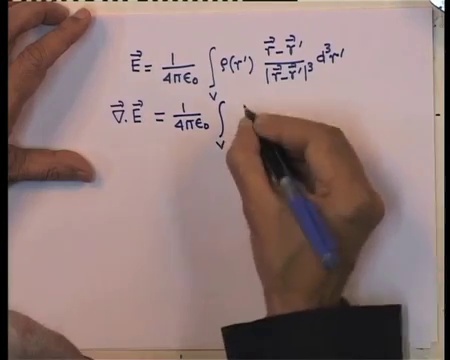 \vec{E} = \frac{1}{4\pi\epsilon_0} \int_V \rho(r') \frac{\vec{r}-\vec{r}'}{|\vec{r}-\vec{r}'|^3} d^3r'
\vec{\nabla}.\vec{E} = \frac{1}{4\pi\epsilon_0} \int_V